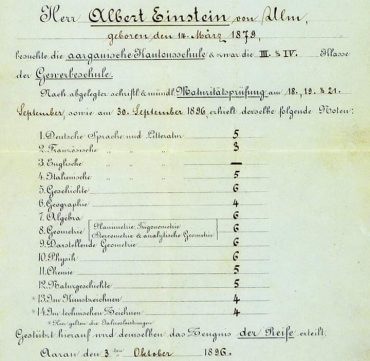 Herr Albert Einstein von Ulm,
geboren den 14. März 1879,
besuchte die aargauische Kantonsschule & zwar die III. & IV. Klasse
der Gewerbeschule.
Nach abgelegter schriftl. & mündl. Maturitätsprüfung am 18., 19. & 21.
September, sowie am 30. September 1896, erhielt derselbe folgende Noten:
1. Deutsche Sprache und Litteratur 5
2. Französische " " " 3
3. Englische " " " —
4. Italienische " " " 5
5. Geschichte 6
6. Geographie 4
7. Algebra 6
8. Geometrie (Planimetrie, Trigonometrie, Stereometrie & analytische Geometrie) 6
9. Darstellende Geometrie 6
10. Physik 6
11. Chemie 5
12. Naturgeschichte 5
*13. Im Kunstzeichnen 4
*14. Im technischen Zeichnen 4
* Hier gelten die Jahresleistungen.
Gestützt hierauf wird demselben das Zeugnis der Reife erteilt.
Aarau den 3ten Oktober 1896.